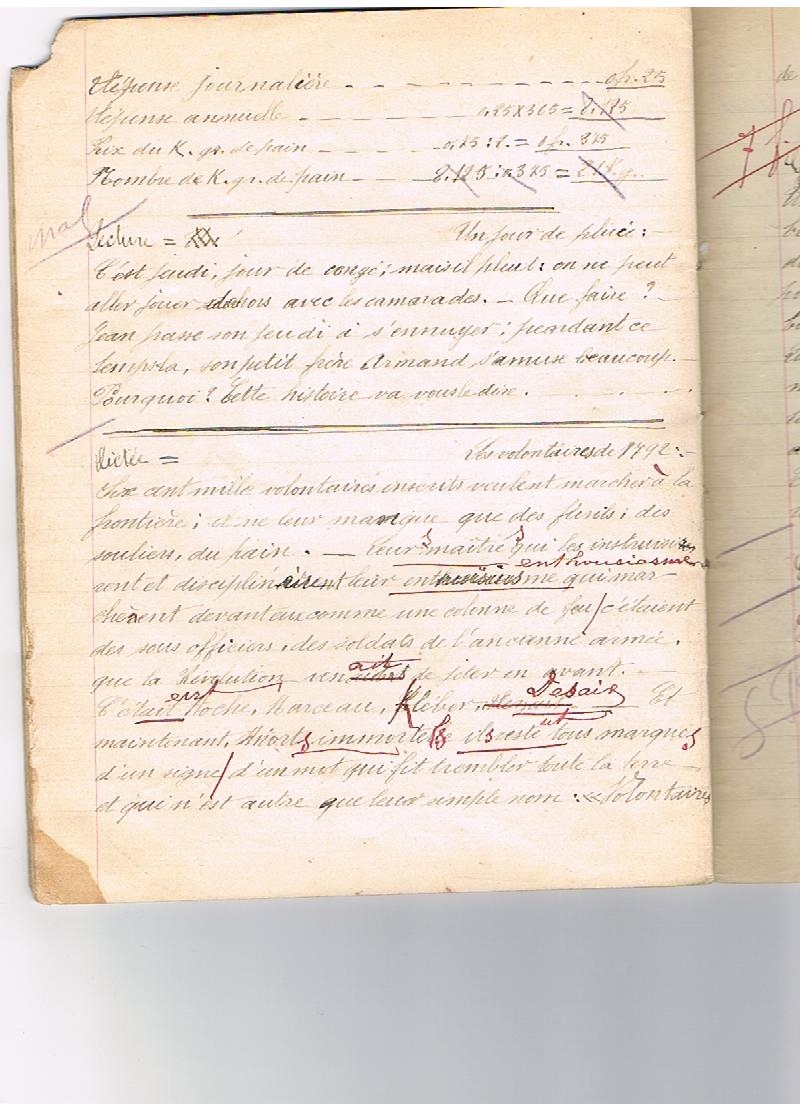 Dépense journalière - - - - - - - - 0fr.25
Dépense annuelle - - - 0,25 x 365 = 8.125
Prix du K. gr. de pain - - - 0,75 : 2. = 0fr. 375
Nombre de K. gr. de pain - - - 8.125 : 0375 = 21K g.
mal
Lecture = XX Un jour de pluie : -
C'est jeudi, jour de congé ; mais il pleut : on ne peut
aller jouer dehors avec les camarades. - Que faire ?
Jean passe son jeudi à s'ennuyer ; pendant ce
temps la, son petit frère Armand s'amuse beaucoup. -
Pourquoi ? Cette histoire va vous le dire.
Dictée = Les volontaires de 1792 : -
Six cent mille volontaires inscrits veulent marcher à la
frontière ; il ne leur manque que des fusils ; des
souliers, du pain. - Leurs maîtres qui les instruisi
enthousiasme
rent et disciplinèrent leur enthousiasme qui mar-
chèrent devant eux comme une colonne de feu / c'étaient
des sous officiers, des soldats de l'ancienne armée,
que la Révolution venait de jeter en avant.
ent Desaix
C'était Hoche, Marceau, Kléber, Et
maintenant, Morts immortels ils reste tous marques
d'un signe / d'un mot qui fit trembler toute la terre
et qui n'est autre que leur simple nom : « Volontaires
de
7 f.